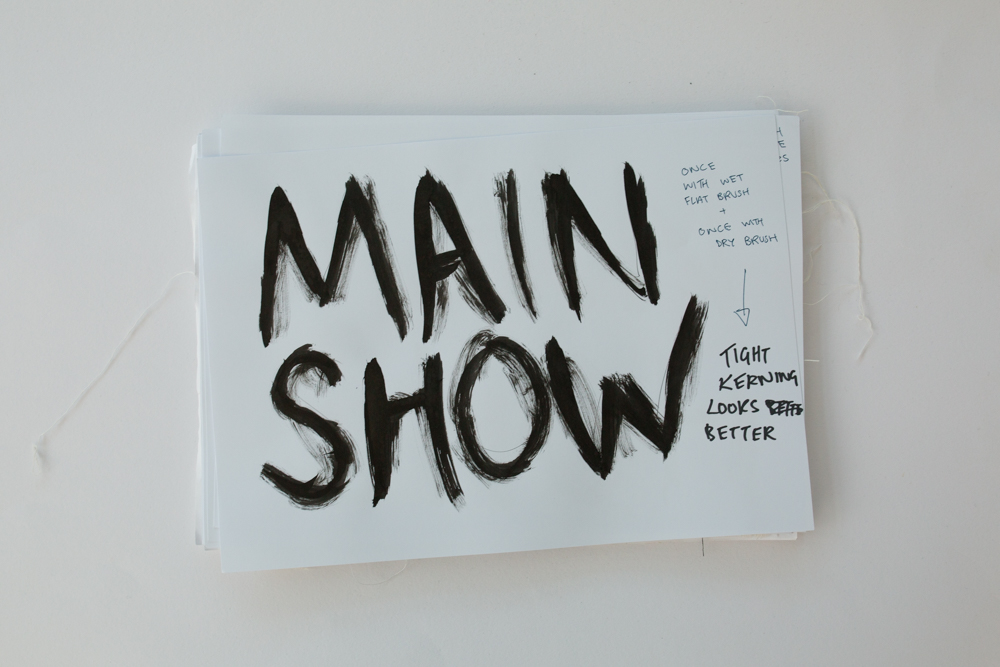 MAIN
SHOW
ONCE
WITH WET
FLAT BRUSH
+
ONCE WITH
DRY BRUSH
TIGHT
KERNING
LOOKS
BETTER